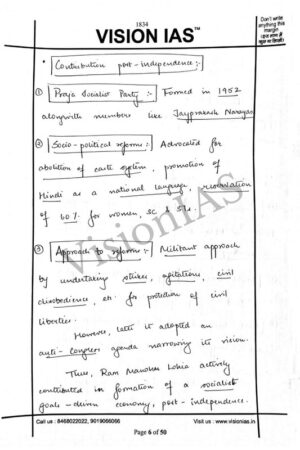 1834
VISION IAS™
Don't write
anything this
margin
* Contribution post-independence :-
① Praja Socialist Party :- Formed in 1952
alongwith members like Jayprakash Narayan
② Socio-political reforms :- Advocated for
abolition of caste system, promotion of
Hindi as a national language, reservation
of 60% for women, SC & STs.
③ Approach to reforms :- Militant approach
by undertaking strikes, agitations, civil
disobedience, etc. for protection of civil
liberties.
However, later it adopted an
anti-Congress agenda narrowing its vision.
Thus, Ram Manohar Lohia actively
contributed in formation of a socialist
goals-driven economy, post-independence.
VisionIAS
Call us : 8468022022, 9019066066
Visit us : www.visionias.in
Page 6 of 50